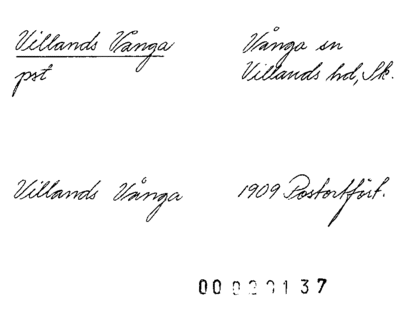 Villands Vånga
pst
Vånga sn
Villands hd, Sk.
Villands Vånga
1909 Postortfört.